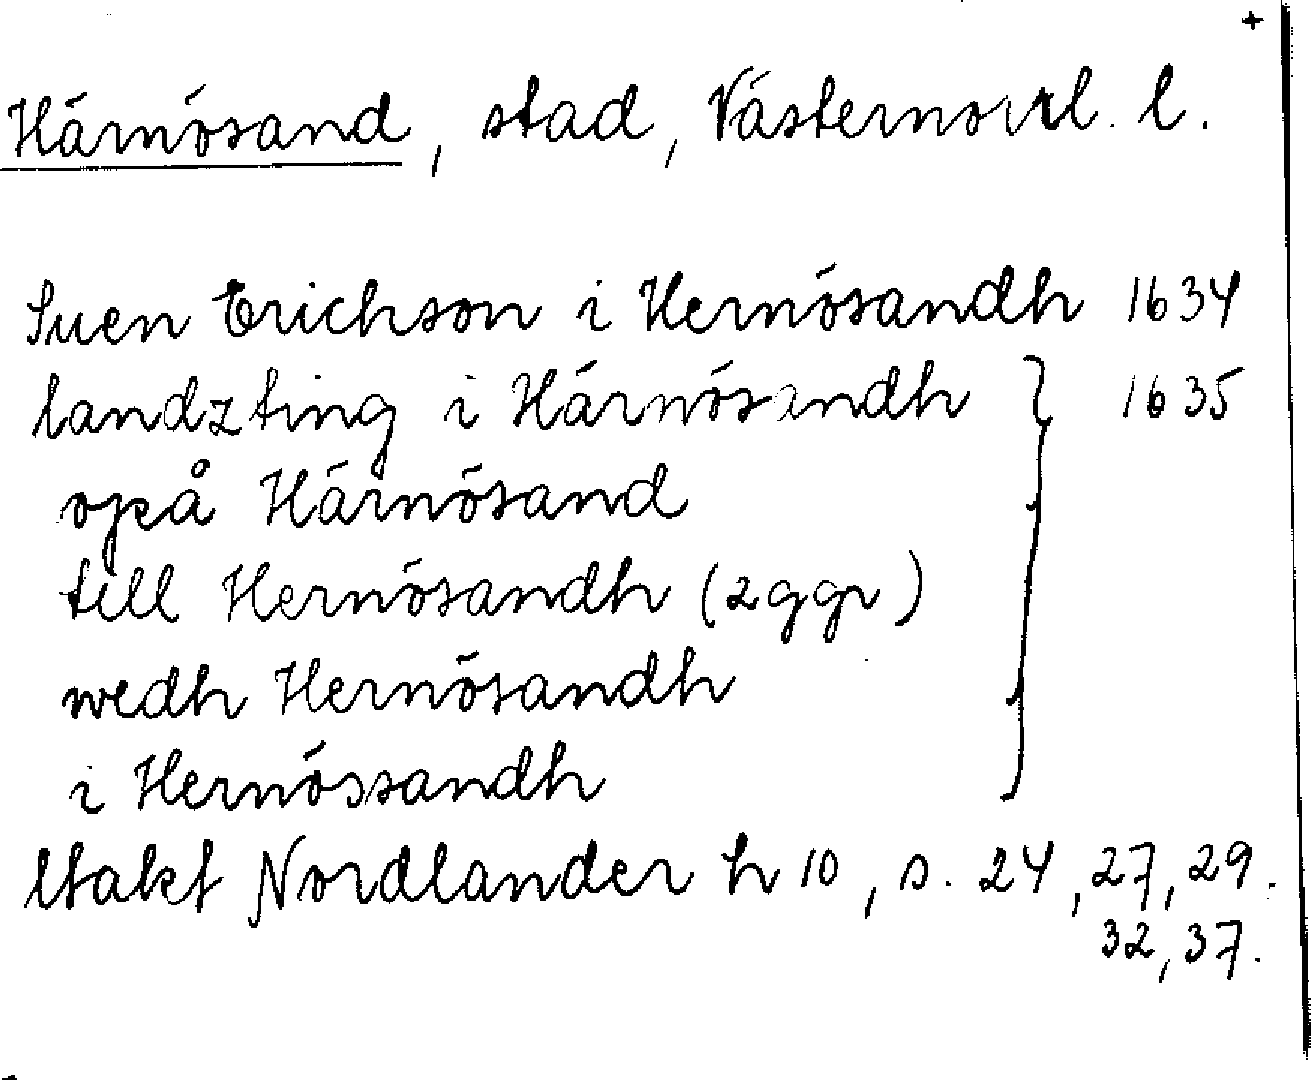 +
Härnösand, stad, Västernorrl. l.
Sven Erichson i Hernösandh 1634
landzting i Härnösandh } 1635
opå Härnösand
till Hernösandh (2 ggr)
wedh Hernösandh
i Hernössandh
Utakt Nordlander h 10, s. 24, 27, 29.
32, 37.